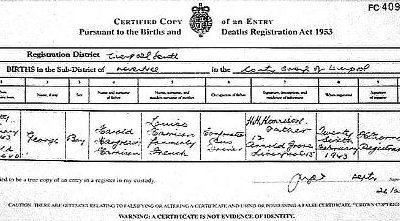 CERTIFIED COPY of an ENTRY
FC 409
Pursuant to the Births and Deaths Registration Act 1953
Registration District Liverpool South
BIRTHS in the Sub-District of in the County Borough of Liverpool
1 2 3 4 5 6 7 8 9
Name, if any Sex Name and surname of father Name, surname, and maiden surname of mother Occupation of father Signature, description, and residence of informant When registered Signature of registrar
George Boy Harold Hargreaves Harrison Louise Harrison formerly French Bus Driver H.H. Harrison Father 12 Arnold Grove Liverpool 15 Twenty Sixth February 1943 Registrar
to be a true copy of an entry in a register in my custody.
CAUTION: THERE ARE OFFENCES RELATING TO FALSIFYING OR ALTERING A CERTIFICATE AND USING OR POSSESSING A FALSE CERTIFICATE. ©CROWN COPYRIGHT
WARNING: A CERTIFICATE IS NOT EVIDENCE OF IDENTITY.